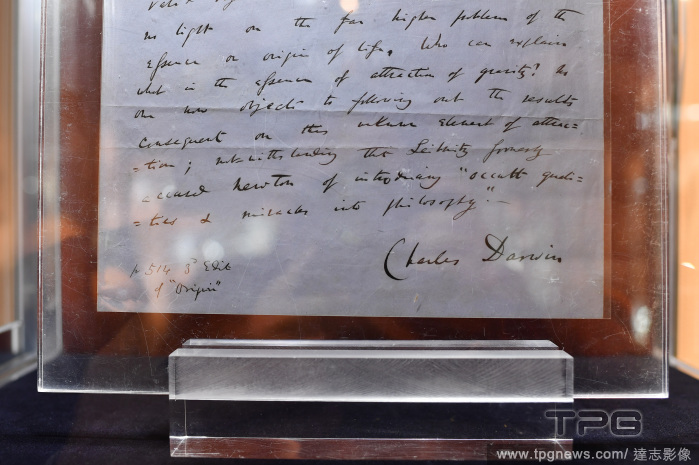 no light on the far higher problem of the
essence or origin of life. Who can explain
what is the essence of attraction of gravity? No
one now objects to following out the results
consequent on this unknown element of attrac=
=tion; notwithstanding that Leibnitz formerly
accused Newton of introducing "occult quali=
=ties & miracles into philosophy."—
Charles Darwin
p 514 3d Edit
of "Origin"
TPG
www.tpgnews.com/ 達志影像